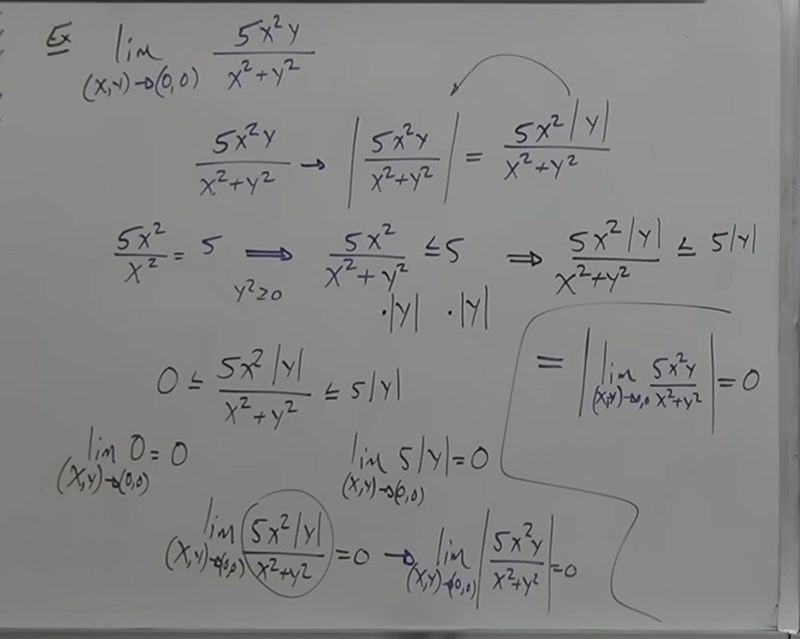 Ex lim (x,y)→(0,0) 5x²y / x²+y²
5x²y / x²+y² → | 5x²y / x²+y² | = 5x²|y| / x²+y²
5x² / x² = 5 ⟹ y²≥0 5x² / x²+y² ≤ 5 ⟹ 5x²|y| / x²+y² ≤ 5|y|
·|y| ·|y|
0 ≤ 5x²|y| / x²+y² ≤ 5|y|
= | lim (x,y)→0,0 5x²y / x²+y² | = 0
lim (x,y)→(0,0) 0 = 0 lim (x,y)→(0,0) 5|y| = 0
lim (x,y)→(0,0) 5x²|y| / x²+y² = 0 → lim (x,y)→(0,0) | 5x²y / x²+y² | = 0